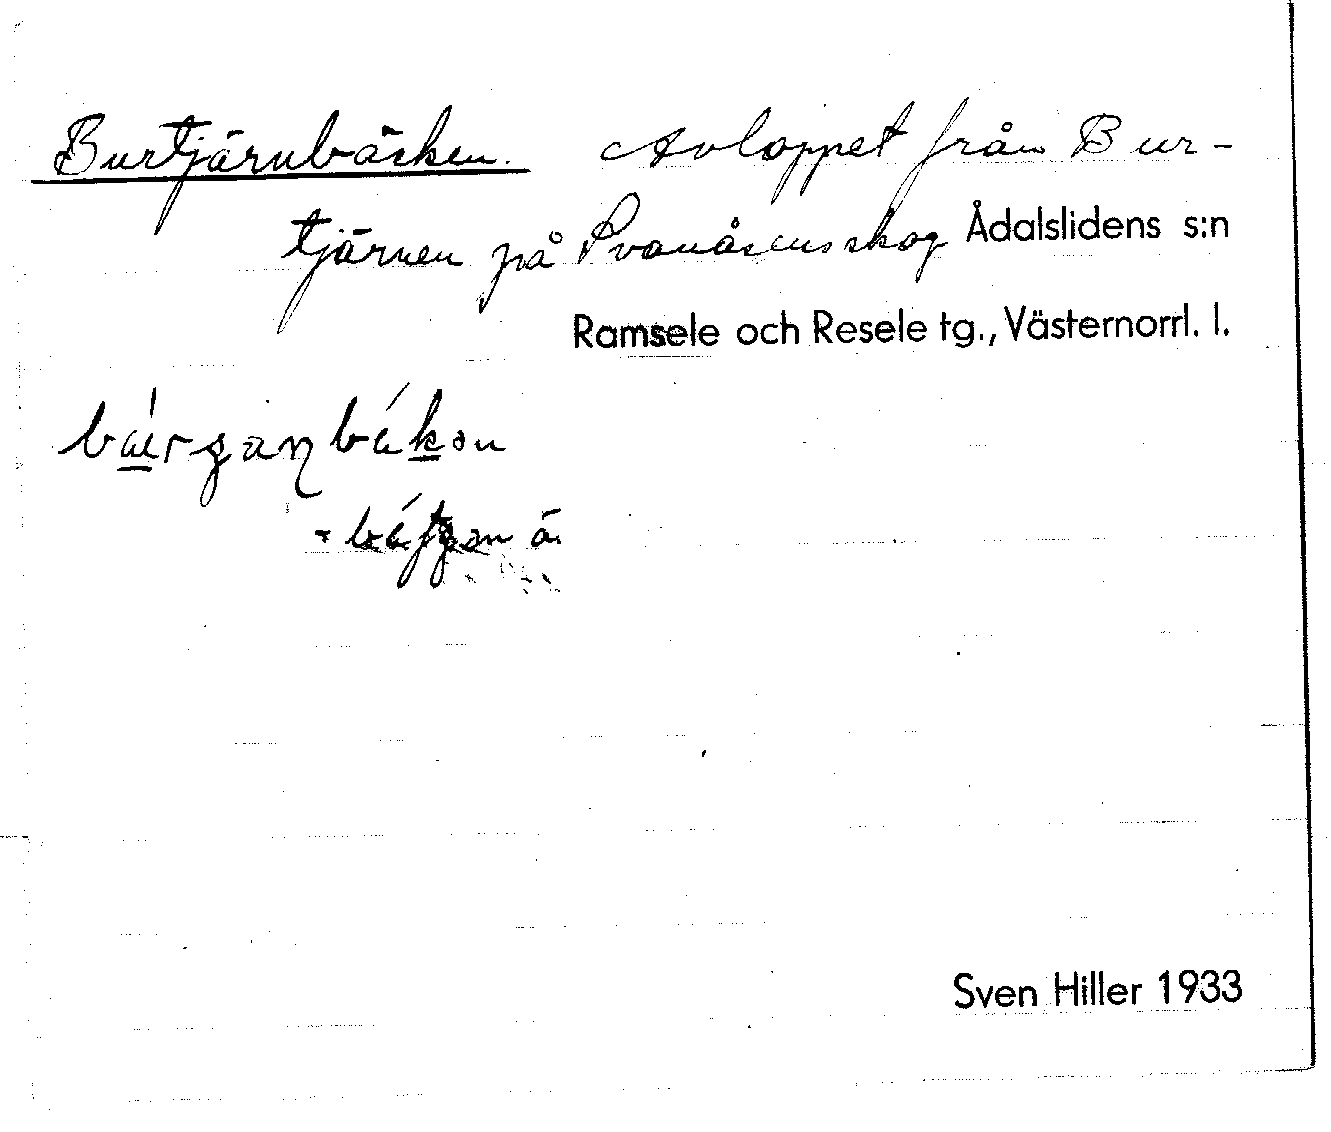 Burtjärnbäcken. Avloppet från Bur-
tjärnen på Svanåsens skog Ådalslidens s:n
Ramsele och Resele tg., Västernorrl. l.
Sven Hiller 1933